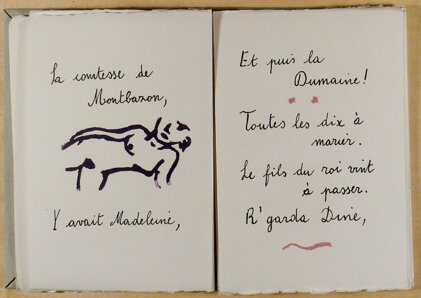 La comtesse de
Montbazon,
Y avait Madeleine,
Et puis la
Dumaine!
Toutes les dix à
marier.
Le fils du roi vint
à passer.
R'garda Dine,